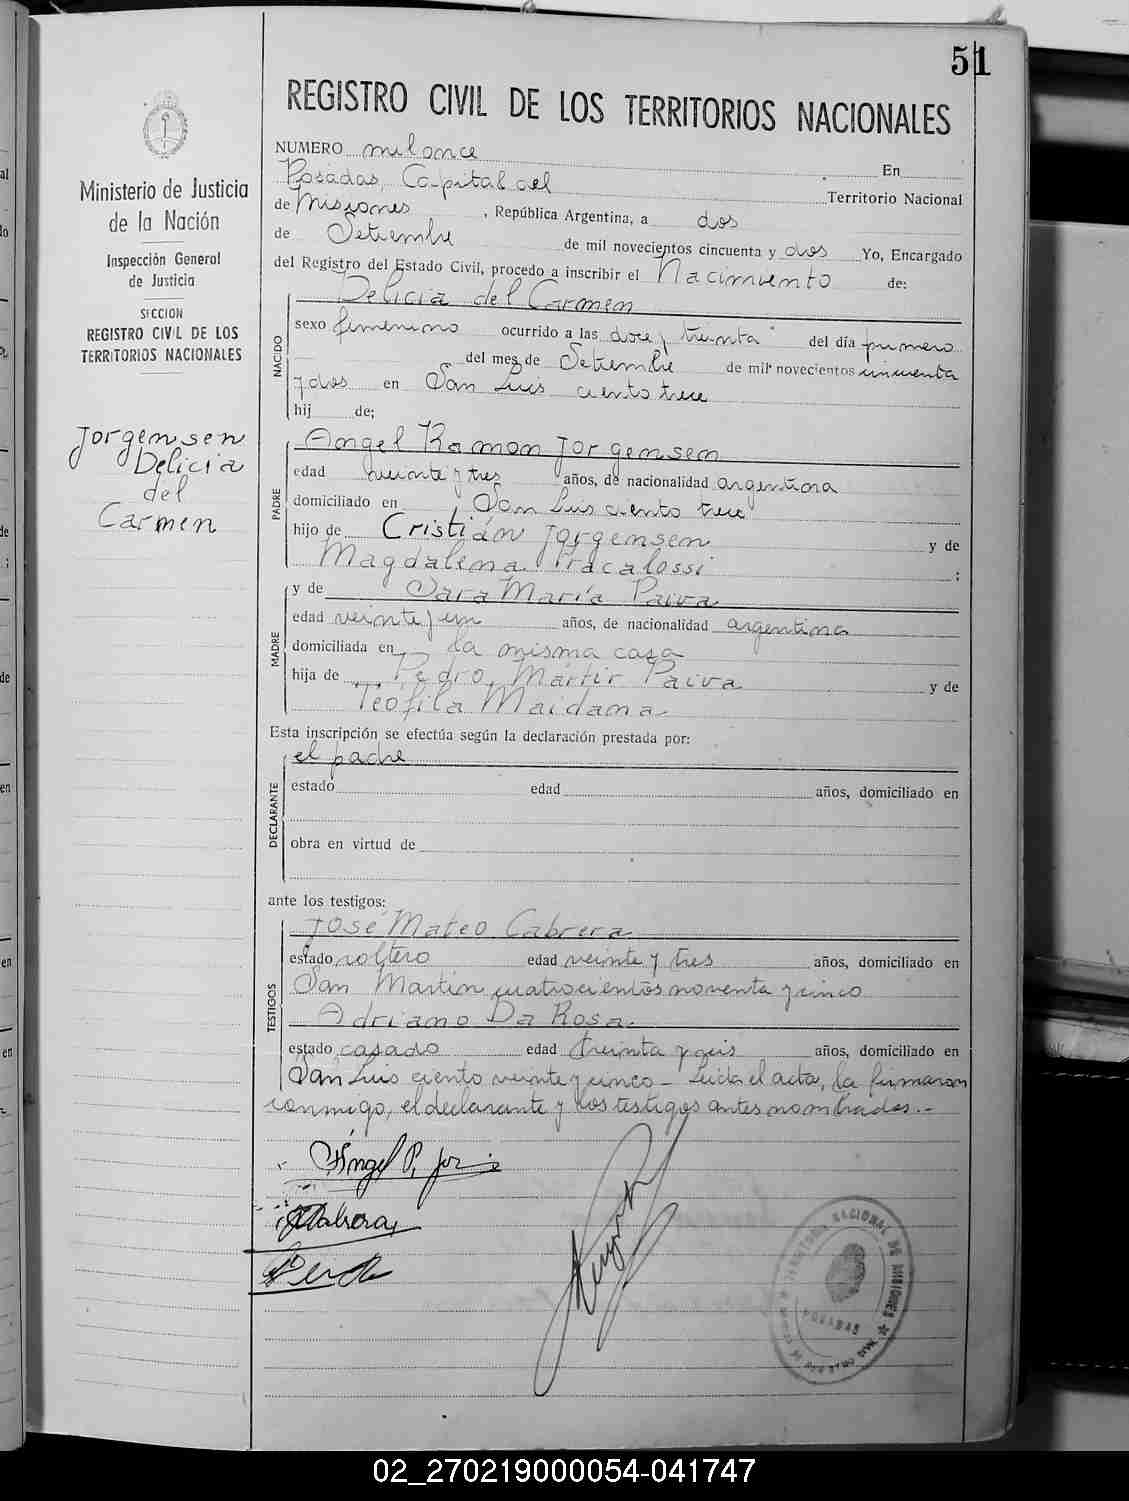 51
REGISTRO CIVIL DE LOS TERRITORIOS NACIONALES
Ministerio de Justicia
de la Nación
Inspección General
de Justicia
SECCION
REGISTRO CIVIL DE LOS
TERRITORIOS NACIONALES
Jorgensen
Delicia
del
Carmen
NUMERO mil once En
Posadas, Capital del Territorio Nacional
de Misiones, República Argentina, a dos
de Setiembre de mil novecientos cincuenta y dos Yo, Encargado
del Registro del Estado Civil, procedo a inscribir el Nacimiento de:
NACIDO
Delicia del Carmen
sexo femenino ocurrido a las doce y treinta del día primero
del mes de Setiembre de mil novecientos cincuenta
y dos en San Luis ciento trece
hij de;
PADRE
Angel Ramon Jorgensen
edad veinte y tres años, de nacionalidad argentina
domiciliado en San Luis ciento trece
hijo de Cristián Jorgensen y de
Magdalena Fracalossi ;
MADRE
y de Sara María Paiva
edad veinte y un años, de nacionalidad argentina
domiciliada en la misma casa
hija de Pedro Mártir Paiva y de
Teófila Maidana
Esta inscripción se efectúa según la declaración prestada por:
DECLARANTE
el padre
estado edad años, domiciliado en
obra en virtud de
ante los testigos:
TESTIGOS
José Mateo Cabrera
estado soltero edad veinte y tres años, domiciliado en
San Martin cuatrocientos noventa y cinco
Adriano Da Rosa.
estado casado edad treinta y seis años, domiciliado en
San Luis ciento veinte y cinco - Leida el acta, la firmaron
conmigo, el declarante y los testigos antes nombrados.-
Angel R. Jor
Cabrera
NACIONAL DE MISIONES
POSADAS
02_270219000054-041747